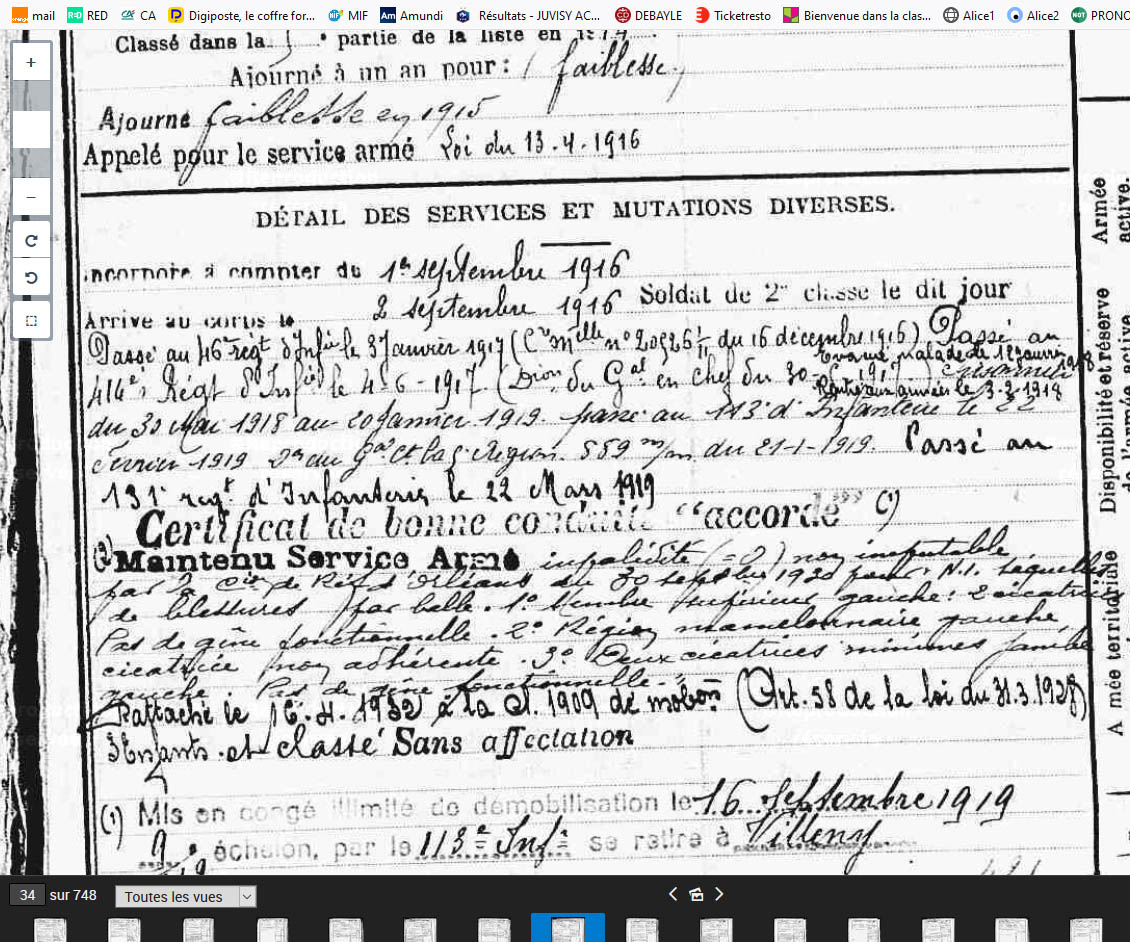 mail RED CA Digiposte, le coffre for... MIF Amundi Résultats - JUVISY AC... DEBAYLE Ticketresto Bienvenue dans la clas... Alice1 Alice2 PRONO
Classé dans la 5e partie de la liste en 1914
Ajourné à un an pour : faiblesse
Ajourné faiblesse en 1915
Appelé pour le service armé Loi du 13.4.1916
DÉTAIL DES SERVICES ET MUTATIONS DIVERSES.
Incorporé à compter du 1er septembre 1916
Arrivé au corps le 2 septembre 1916 Soldat de 2e classe le dit jour
Passé au 46e régt d'Infie le 3 Janvier 1917 (Con mlle n° 20526 1/11 du 16 décembre 1916) Passé au
Evacué malade le 12 janvier 1918
414e Régt d'Infie le 4-6-1917 (Don du Gal en chef du 30- 1917) Prisonnier
Rentré aux armées le 3-3-1918
du 30 Mai 1918 au 20 janvier 1919. passé au 113e d'Infanterie le 22
février 1919 Don du Gal Ct la 5e Région 559 m/m du 21-1-1919. Passé au
131e régt d'Infanterie le 22 Mars 1919
Certificat de bonne conduite "accordé" (1)
(2) Maintenu Service Armé invalidité (= 0) non imputable
par 2e Cie de Réf. d'Orléans du 30 septbre 1920 pour : N.I. séquelles
de blessures par balle. 1° Membre supérieur gauche : 2 cicatrices
Pas de gêne fonctionnelle. 2° Région mamelonnaire gauche,
cicatrice non adhérente. 3° Deux cicatrices minimes jambe
gauche. Pas de gêne fonctionnelle.
Rattaché le 16.4.1932 à la cl. 1909 de mobon (Art. 58 de la loi du 31.3.1928)
3 Enfants. et classé Sans affectation
(1) Mis en congé illimité de démobilisation le 16 septembre 1919
9e échelon, par le 113e Infie se retire à Villeny
Armée active.
Disponibilité et réserve de l'armée active
Armée territoriale
34 sur 748 Toutes les vues